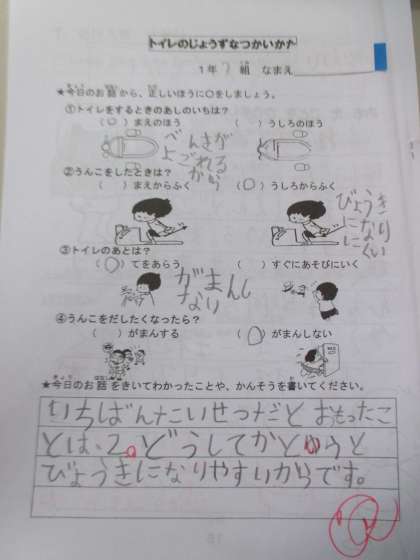 トイレのじょうずなつかいかた
1年 組 なまえ
★今日のお話から、正しいほうに○をしましょう。
①トイレをするときのあしのいちは？
(○) まえのほう ( ) うしろのほう
べんきが
よごれる
から
②うんこをしたときは？
( ) まえからふく (○) うしろからふく
びょうき
になり
にくい
③トイレのあとは？
(○) てをあらう ( ) すぐにあそびにいく
がまんし
ない
④うんこをだしたくなったら？
( ) がまんする (○) がまんしない
★今日のお話をきいてわかったことや、かんそうを書いてください。
いちばんたいせつだとおもったこ
とは、2。どうしてかとゆうと
びょうきになりやすいからです。
18